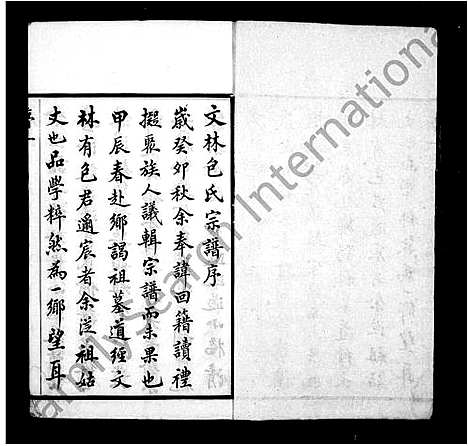 文林包氏宗譜序
歲癸卯秋余奉諱回籍讀禮
擬聚族人議輯宗譜而未果也
甲辰春赴鄉謁祖墓道經文
林有包君遹宸者余從祖姑
丈也品學粹然為一鄉望耳
FamilySearch International